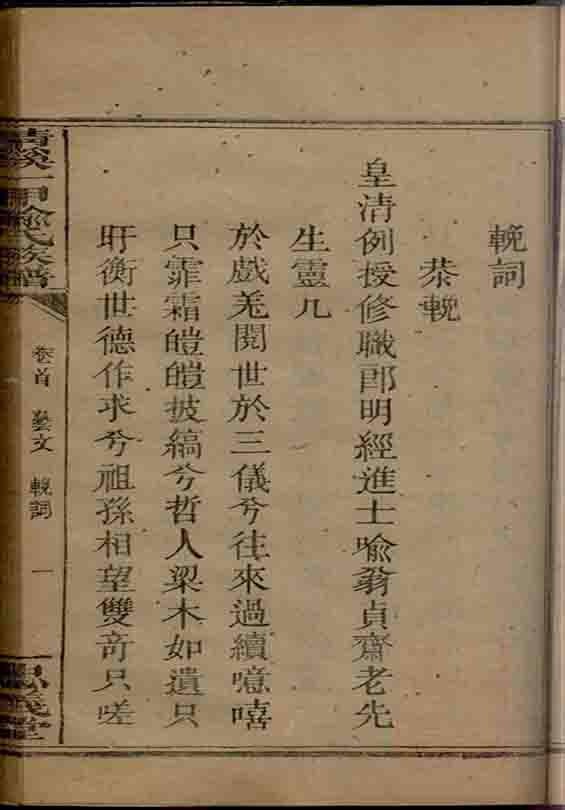 輓詞
恭輓
皇清例授修職郎明經進士喻翁貞齋老先
生靈几
於戲羌閱世於三儀兮往來過續噫嘻
只霏霜皚皚披縞兮哲人梁木如遺只
盱衡世德作求兮祖孫相望雙奇只嗟
甲喻氏族譜
卷首 藝文 輓詞 一
義堂